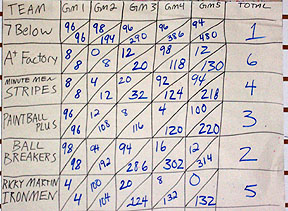 TEAM Gm 1 Gm 2 Gm 3 Gm4 Gm5 TOTAL
7 Below 96 98 96 96 94 1
96 194 290 386 480
A+ Factory 8 0 12 98 12 6
8 20 118 130
MINUTE MEN 8 4 20 92 94 4
STRIPES 12 32 124 218
PAINTBALL 96 12 8 4 100 3
PLUS 96 108 116 120 220
BALL 98 94 94 16 12 2
BREAKERS 98 192 286 302 314
RICKY MARTIN 4 100 20 8 0 5
IRONMEN 4 104 224 132 132